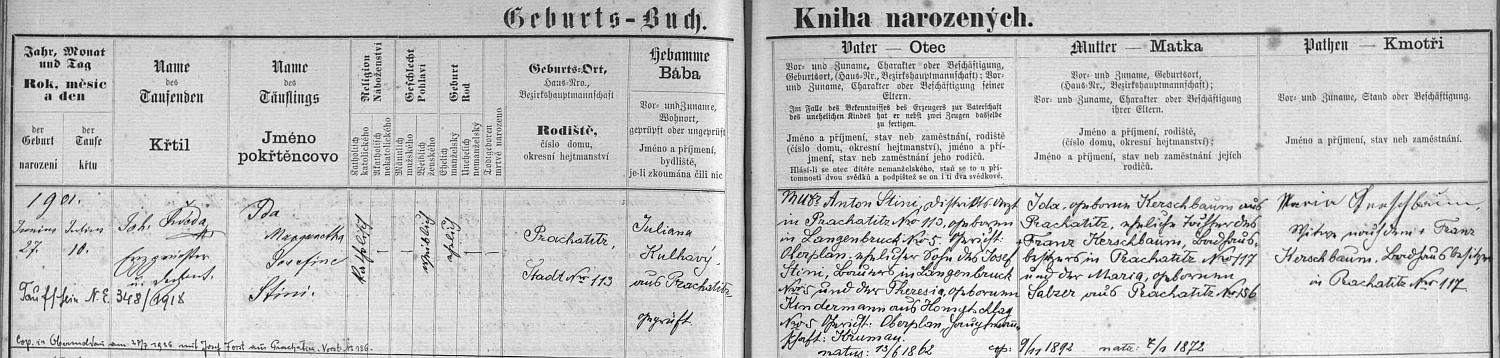 Geburts-Buch.
Jahr, Monat und Tag
Rok, měsíc a den
der Geburt
narození
der Taufe
křtu
Name
des
Taufenden
Křtil
Name
des
Täuflings
Jméno
pokřtěncovo
Religion
Náboženství
Katholisch
katolického
Geschlecht
Pohlaví
Männlich
mužského
Weiblich
ženského
Geburt
Rod
Ehelich
manželský
Unehelich
nemanželský
Todtgeboren
mrtvě narozeno
Geburts-Ort,
Haus-Nro.,
Bezirkshauptmannschaft
Rodiště,
číslo domu,
okresní hejtmanství
Hebamme
Bába
Vor- und Zuname,
Wohnort,
geprüft oder ungeprüft
Jméno a příjmení,
bydliště,
je-li zkoumána čili nic
1901.
Junius
27.
Julius
10.
Joh.
Ida
Margaretha
Josefine
Stini.
Katholisch
weiblich
ehelich
Prachatitz,
Stadt No 113
Juliana
Kulhavý
aus Prachatitz
geprüft.
Taufschein N.E. 348/1918
Cop. in Obermoldau am mit Josef aus Prachatitz.
Kniha narozených.
Vater — Otec
Vor- und Zuname, Charakter oder Beschäftigung,
Geburtsort, (Haus-Nr., Bezirkshauptmannschaft); Vor-
und Zuname, Charakter oder Beschäftigung seiner
Eltern.
Im Falle des Bekenntnisses des Erzeugers zur Vaterschaft
des unehelichen Kindes hat er nebst zwei Zeugen dasselbe
zu fertigen.
Jméno a příjmení, stav neb zaměstnání, rodiště
(číslo domu, okresní hejtmanství), jméno a pří-
jmení, stav neb zaměstnání jeho rodičů.
Hlásí-li se otec dítěte nemanželského, staň se to u pří-
tomnosti dvou svědků a podpištež se on i ti dva svědkové.
Mutter — Matka
Vor- und Zuname, Geburtsort,
(Haus-Nr., Bezirkshauptmannschaft);
Vor- und Zuname, Charakter oder Beschäftigung
ihrer Eltern.
Jméno a příjmení, rodiště,
(číslo domu, okresní hejtmanství);
Jméno a příjmení, stav neb zaměstnání jejich
rodičů.
Pathen — Kmotři
Vor- und Zuname, Stand oder Beschäftigung.
Jméno a příjmení, stav neb zaměstnání.
MUDr. Anton Stini, Distriktsarzt
in Prachatitz No 113, geboren
in Langenbruck No 5. Gericht
Oberplan, ehelicher Sohn des Josef
Stini, Bauers in Langenbruck
No 5 und der Theresia, geborenen
Kindermann aus
No 5 Gericht: Oberplan, Hauptmann-
schaft: Krumau.
natus: 13/6 1862
Ida, geboren Kerschbaum aus
Prachatitz, eheliche Tochter des
Franz Kerschbaum,
besitzers in Prachatitz No 117
und der Maria, geborenen
Salzer aus Prachatitz No 136
cop: 9/11 1892 nata: 7/1 1872
Maria Kerschbaum,
Witwe nach dem + Franz
Kerschbaum,
in Prachatitz No 117